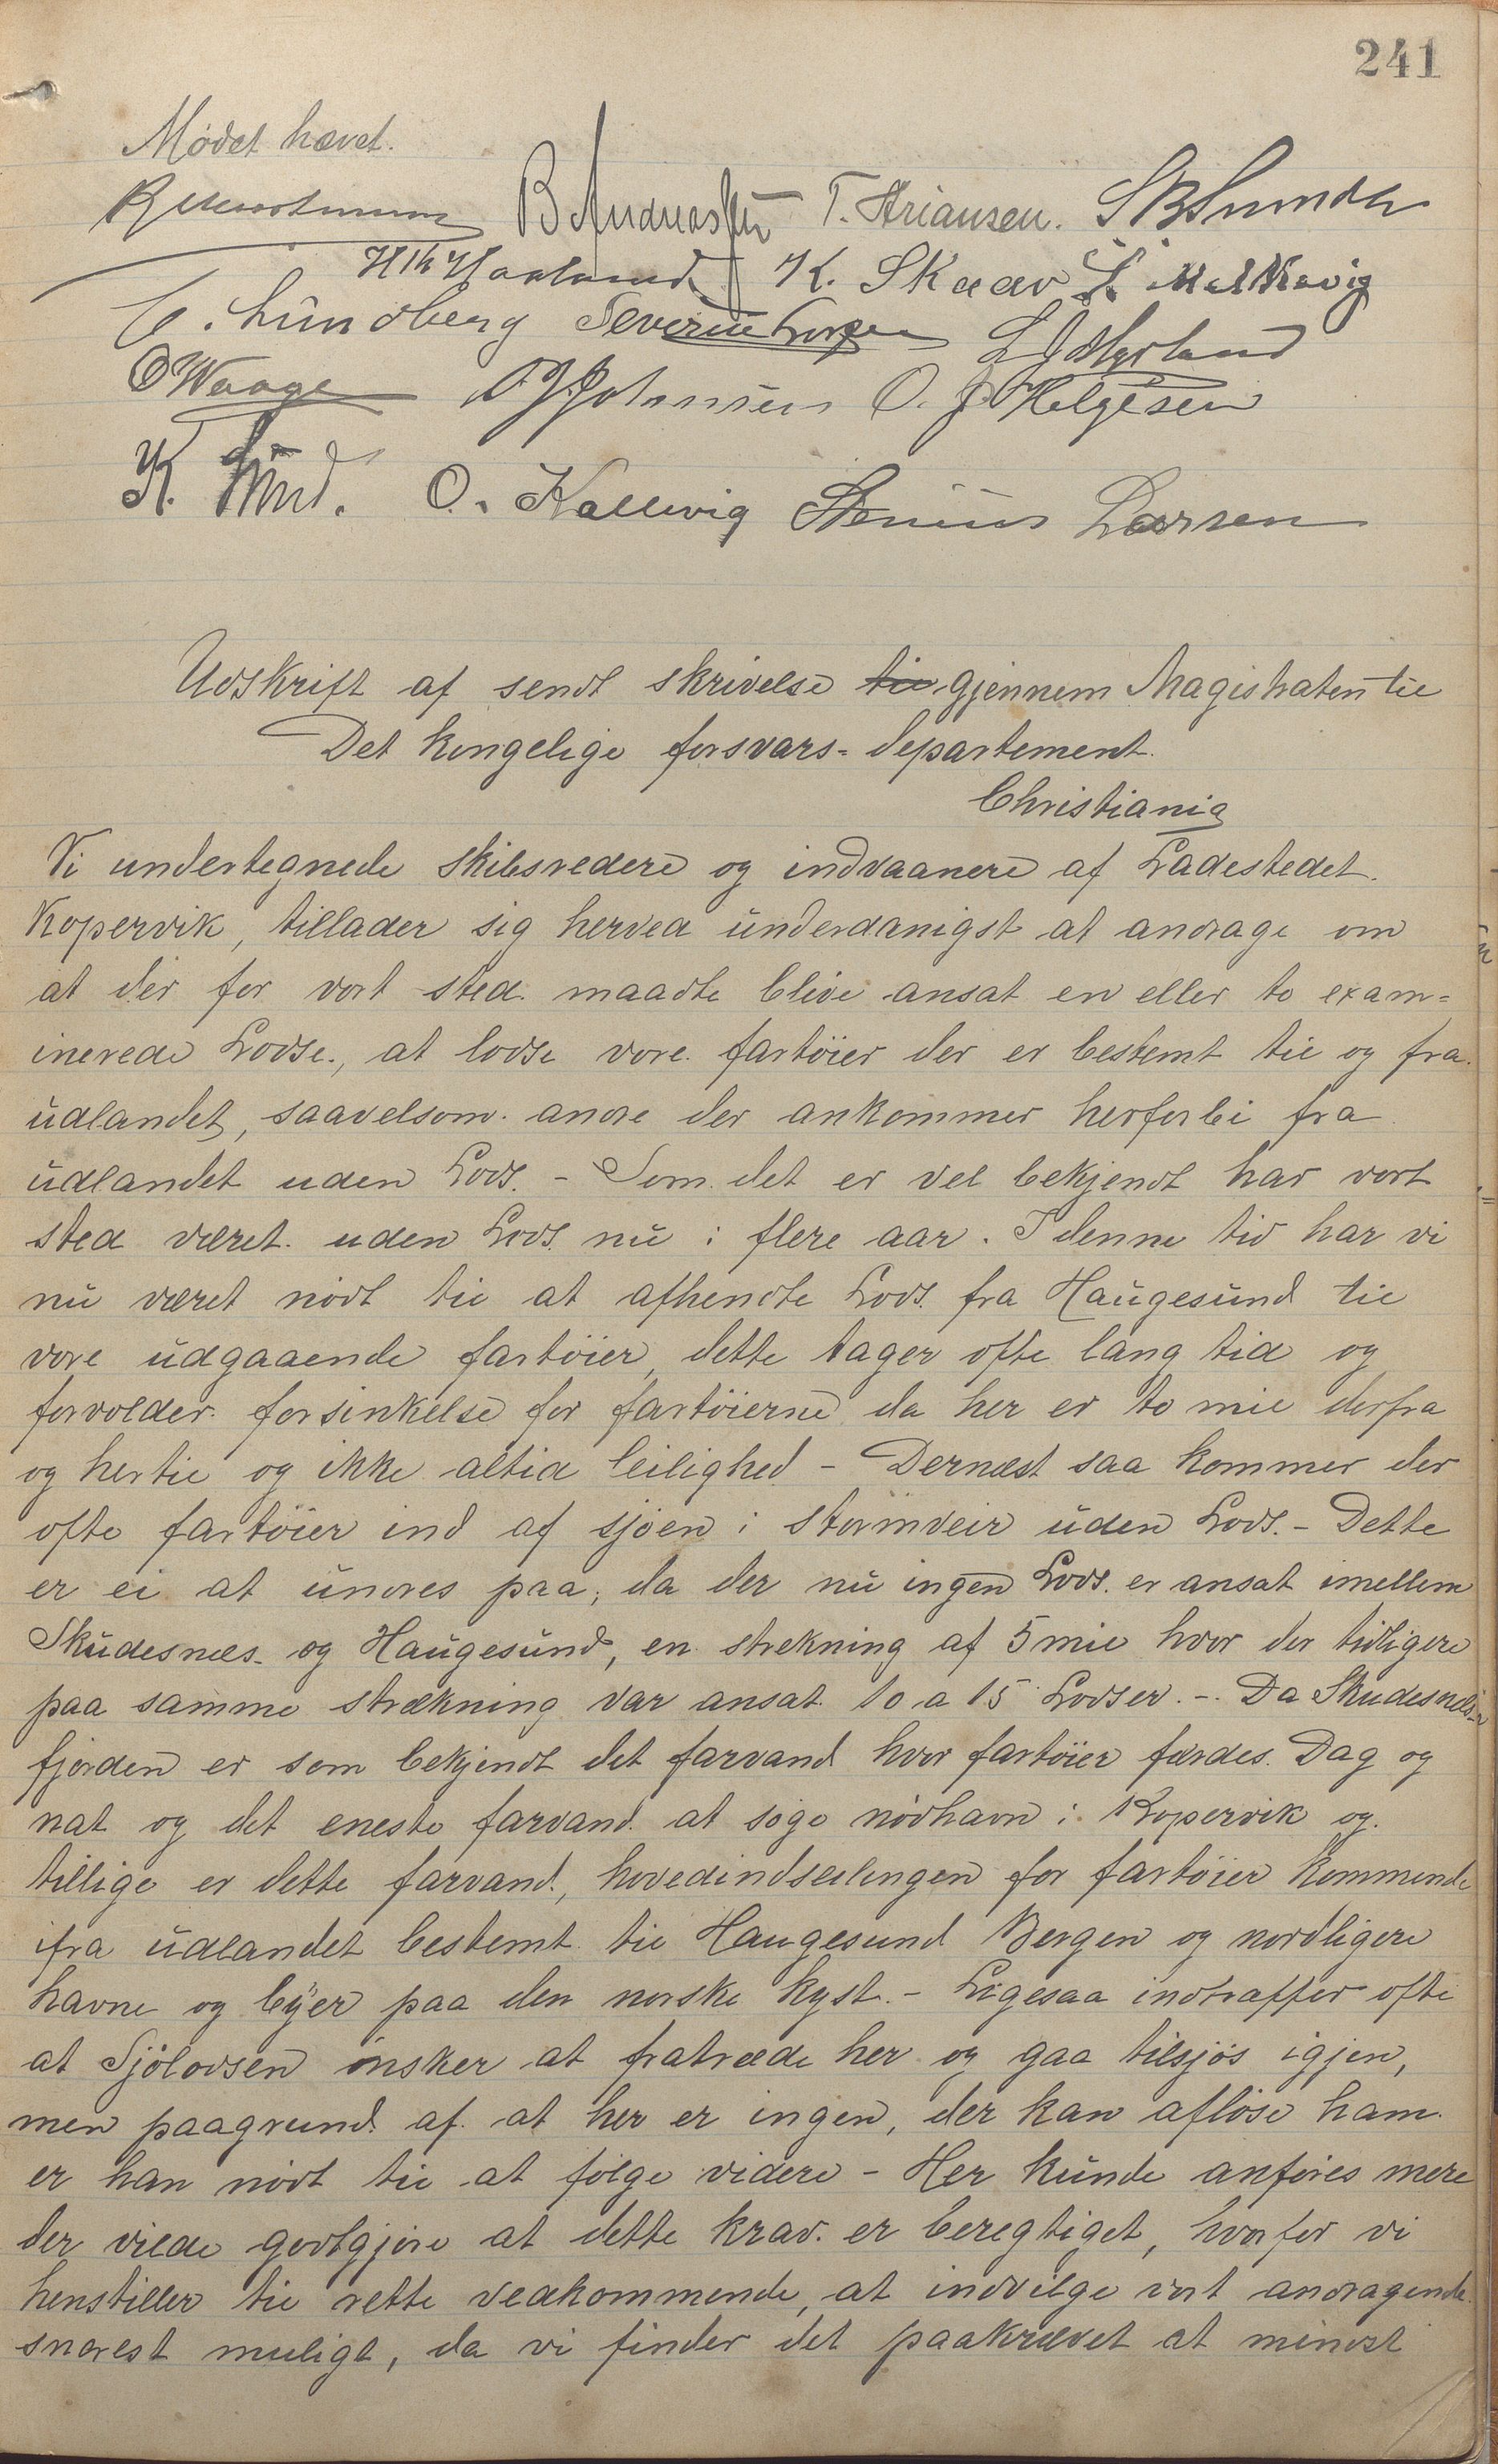 241
Mødet hævet.
B Andreassen T. Ariansen. S B Sunde
H Th Haaland K. Skaar L. Melkevig
C. Lundberg Severin Larsen L J Myrland
O Waage O J Johansen O. J. Helgesen
K. Lind. O. Kallevig Stenius Larsen
Udskrift af sendt skrivelse til gjennem Magistraten til
Det kongelige forsvars-departement.
Christiania
Vi undertegnede skibsredere og indvaanere af Ladestedet.
Kopervik, tillader sig herved underdanigst at andrage om
at der for vort sted. maadte blive ansat en eller to exam-
inerede Lodse., at lodse vore. fartöier der er bestemt til og fra.
udlandet, saavelsom. andre der ankommer herforbi fra
udlandet uden Lods. - Som det er vel bekjendt har vort
sted været. uden Lods. nu i flere aar. I denne tid har vi
nu været nödt til at afhendte Lods. fra Haugesund til
vore udgaaende fartöier, dette tager ofte lang tid og
forvolder. forsinkelse for fartöierne da her er to mil derfra
og hertil og ikke altid leilighed - Dernæst saa kommer der
ofte fartöier ind af sjöen i stormveir uden Lods. - Dette
er ei at undres paa, da der nu ingen Lods. er ansat imellem
Skudesnæs- og Haugesund, en strekning af 5 mil hvor der tidligere
paa samme strækning var ansat 10 a 15 Lodser. -. Da Skudesnæs-
fjorden er som bekjendt det farvand hvor fartöier færdes. Dag og
nat og det eneste farvand. at søge nödhavn i Kopervik og.
tillige er dette farvand., hovedindseilingen for fartöier kommende
ifra udlandet bestemt til Haugesund Bergen og nordligere
havne og byer paa den norske kyst. - Ligesaa indtraffer ofte
at Sjölodsen önsker at fratræde her og gaa tilsjös igjen,
men paagrund. af. at her er ingen, der kan aflöse ham.
er han nödt til at følge videre - Her kunde anføres mere
der vilde godtgjøre at dette krav. er beregtiget, hvorfor vi
henstiller til rette vedkommende, at indvilge vort andragende.
snarest muligt, da vi finder det paakrævet at mindst